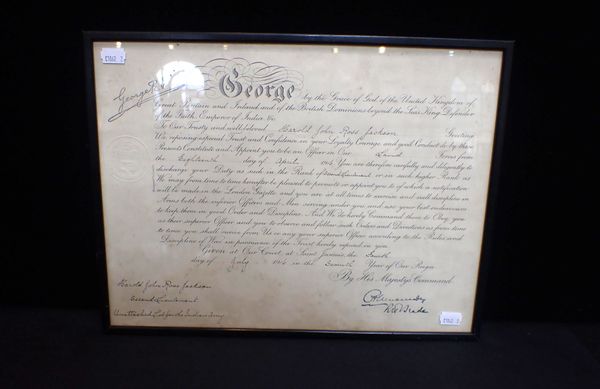 E1162 2
George R.I.
George
by the Grace of God of the United Kingdom of
Great Britain and Ireland and of the British Dominions beyond the Seas King, Defender
of the Faith, Emperor of India, &c.
To Our Trusty and well beloved Harold John Ross Jackson Greeting
We reposing especial Trust and Confidence in your Loyalty, Courage, and good Conduct do by these
Presents Constitute and Appoint you to be an Officer in Our Land Forces from
the Eighteenth day of April. You are therefore carefully and diligently to
discharge your Duty as such in the Rank of Second Lieutenant or in such higher Rank as
We may from time to time hereafter be pleased to promote or appoint you to of which a notification
will be made in the London Gazette and you are at all times to exercise and well discipline in
Arms both the inferior Officers and Men serving under you and use your best endeavours
to keep them in good Order and Discipline. And We do hereby Command them to Obey you
as their superior Officer and you to observe and follow such Orders and Directions as from time
to time you shall receive from Us or any your superior Officer according to the Rules and
Discipline of War in pursuance of the Trust hereby reposed in you.
Given at Our Court, at Saint James's, the
day of July in the Seventh Year of Our Reign
By His Majesty's Command
Harold John Ross Jackson
Second Lieutenant
Unattached List for the Indian Army
R H Brade
E1162 2